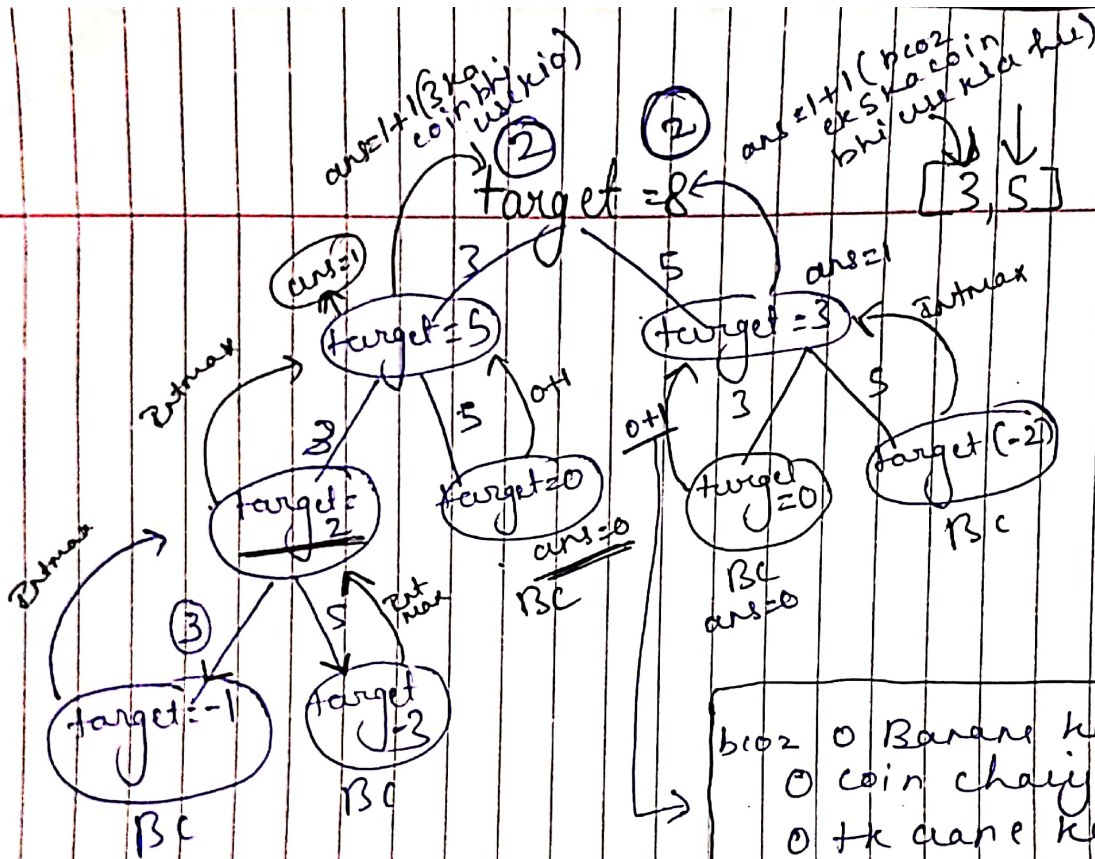 ans=1+1(3 ka
coin bhi
use kia)
2
2
ans=1+1(bcoz
ek 5 ka coin
bhi use kia hu)
[3,5]
target = 8
3
5
ans=1
ans=1
target=5
target=3
Intmax
Intmax
3
5
0+1
0+1
3
5
target=
2
target=0
ans=0
BC
target
=0
BC
ans=0
target(-2)
BC
Intmax
3
5
Int
max
target=-1
BC
target
-3
BC
bcoz 0 Banane k
0 coin chaiy
0 tk aane k